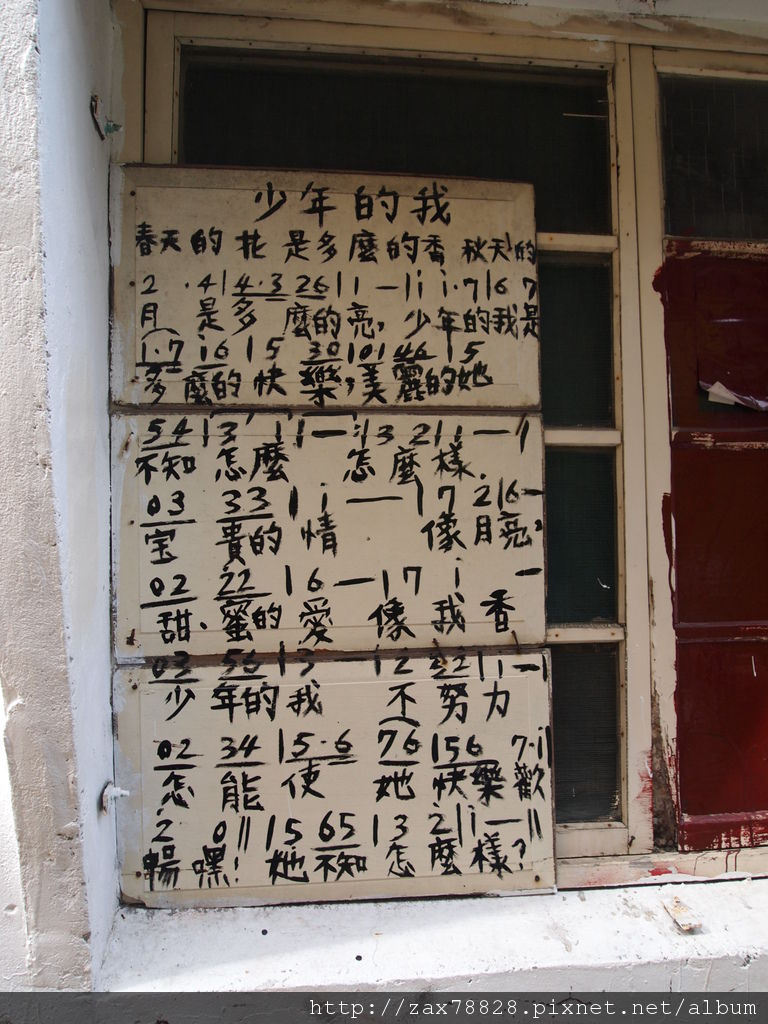 少年的我
春天的花 是多麼的香 秋天的
2 . 4 | 4·3 26 | 1 — | i i·7 | 6 7
月 是多 麼的亮, 少年的我是
i·7 i6 | 5 30 | 101 46 | 5
多 麼的 快 樂, 美 麗的她
54 | 3 i | i — : | 3 2 | i — |
不知 怎麼 怎麼樣.
03 33 | i — | 7 2 | 6 —
宝 貴的 情 像月亮,
02 22 | 6 — | 7 i —
甜. 蜜的 愛 像 我 香
03 56 | 3 — | 2 22 | i — |
少 年的 我 不 努 力
02 34 | 5·6 76 | 56 7·i |
怎 能 使 她 快樂 歡
2 0 || 5 65 | 3 2 | i — ||
暢 嘿! 她不知 怎麼樣?
http://zax78828.pixnet.net/album